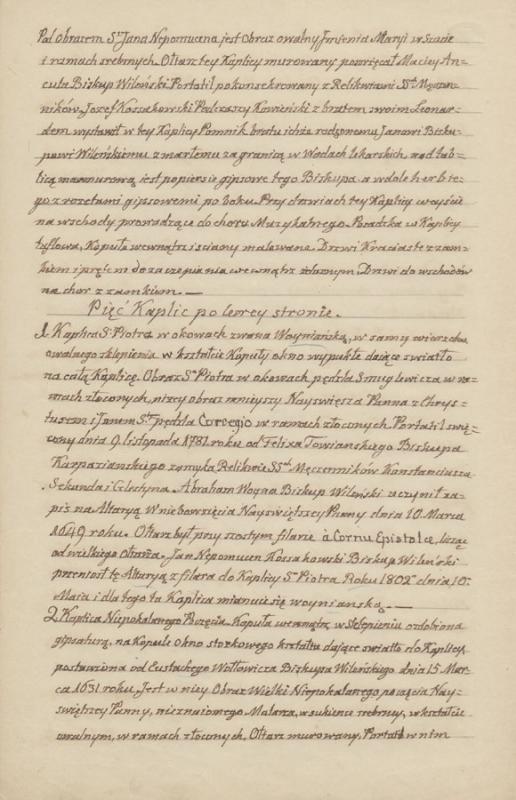 Pod obrazem Sº Jana Nepomucena jest Obraz owalny Imienia Maryi w Szacie
i ramach srebrnych. Ołtarz tey Kaplicy murowany poswięcał Maciey An=
cuta Biskup Wileński Portatil pokonsekrowany z Relikwiami SSt. Męczen=
ników. Jozef Kossakowski Podczaszy Kowieński z bratem swoim Leonar=
dem wystawił w tey Kaplicy Pomnik bratu ich rodzonemu Janowi Bisku=
powi Wileńskiemu zmarłemu zagranicą w Wodach lekarskich, nad tab=
licą marmurową jest popiersie gipsowe tego Biskupa, a w dole herb te=
go z rozetami gipsowemi po boku. Przy drzwiach tey Kaplicy wyjście
na wschody prowadzące do choru Muzykalnego. Posadzka w Kaplicy
tyflowa, Kopuła wewnątrz i sciany malowane Drzwi Kraciaste z zam=
kiem i prętem do zaczepiania wewnątrz żelaznym. Drzwi do wschodów
na chor z zamkiem. —
Pięć Kaplic po lewey stronie.
1. Kaplica S. Piotra w okowach zwana Woyniańską, w samym wierzchu
owalnego sklepienia w kształcie Kopuły okno wypukłe dające swiatło
na całą Kaplicę. Obraz Sº Piotra w okowach pędzla Smuglewicza w ra=
mach złoconych, niżey obraz mnieyszy Nayswięsza Panna z Chrys=
tusem i Janem Sm pędzla Coregio w ramach złoconych. Portatil swię=
cony dnia 9. listopada 1781. roku od Felixa Towianskiego Biskupa
Karpazianskiego zamyka Relikwie SSch Męczenników Konstanciusza
Sekunda i Celestyna. Abraham Woyna Biskup Wileński uczynił za=
pis na Altaryą Wniebowzięcia Nayswiętszey Panny dnia 20. Marca
1649 roku. Ołtarz był przy szostym filarze à Cornu Epistolæ, licząc
od wielkiego Ołtarza. Jan Nepomucen Kossakowski Biskup Wileński
przeniosł tę Altaryą z filara do Kaplicy Sº Piotra Roku 1802 dnia 10.
Maia i dla tego ta Kaplica mianuie się woynianską. —
2. Kaplica Niepokalanego Poczęcia. Kopuła wewnątrz w sklepieniu ozdobiona
gipsaturą, na Kopule okno storkowego kształtu dające swiatło do Kaplicy,
postawiona od Eustachego Wołłowicza Biskupa Wileńskiego dnia 15 Mar=
ca 1631 roku. Jest w niey Obraz Wielki Niepokalanego poczęcia Nay=
swiętszey Panny, nieznaiomego Malarza, w sukience srebrney, w kształcie
owalnym, w ramach złoconych. Ołtarz murowany, Portatil w nim